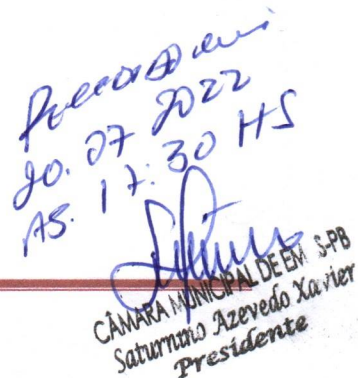 20.07.2022
AS. 17:30 HS
CÂMARA MUNICIPAL DE EM S-PB
Saturnino Azevedo Xavier
Presidente